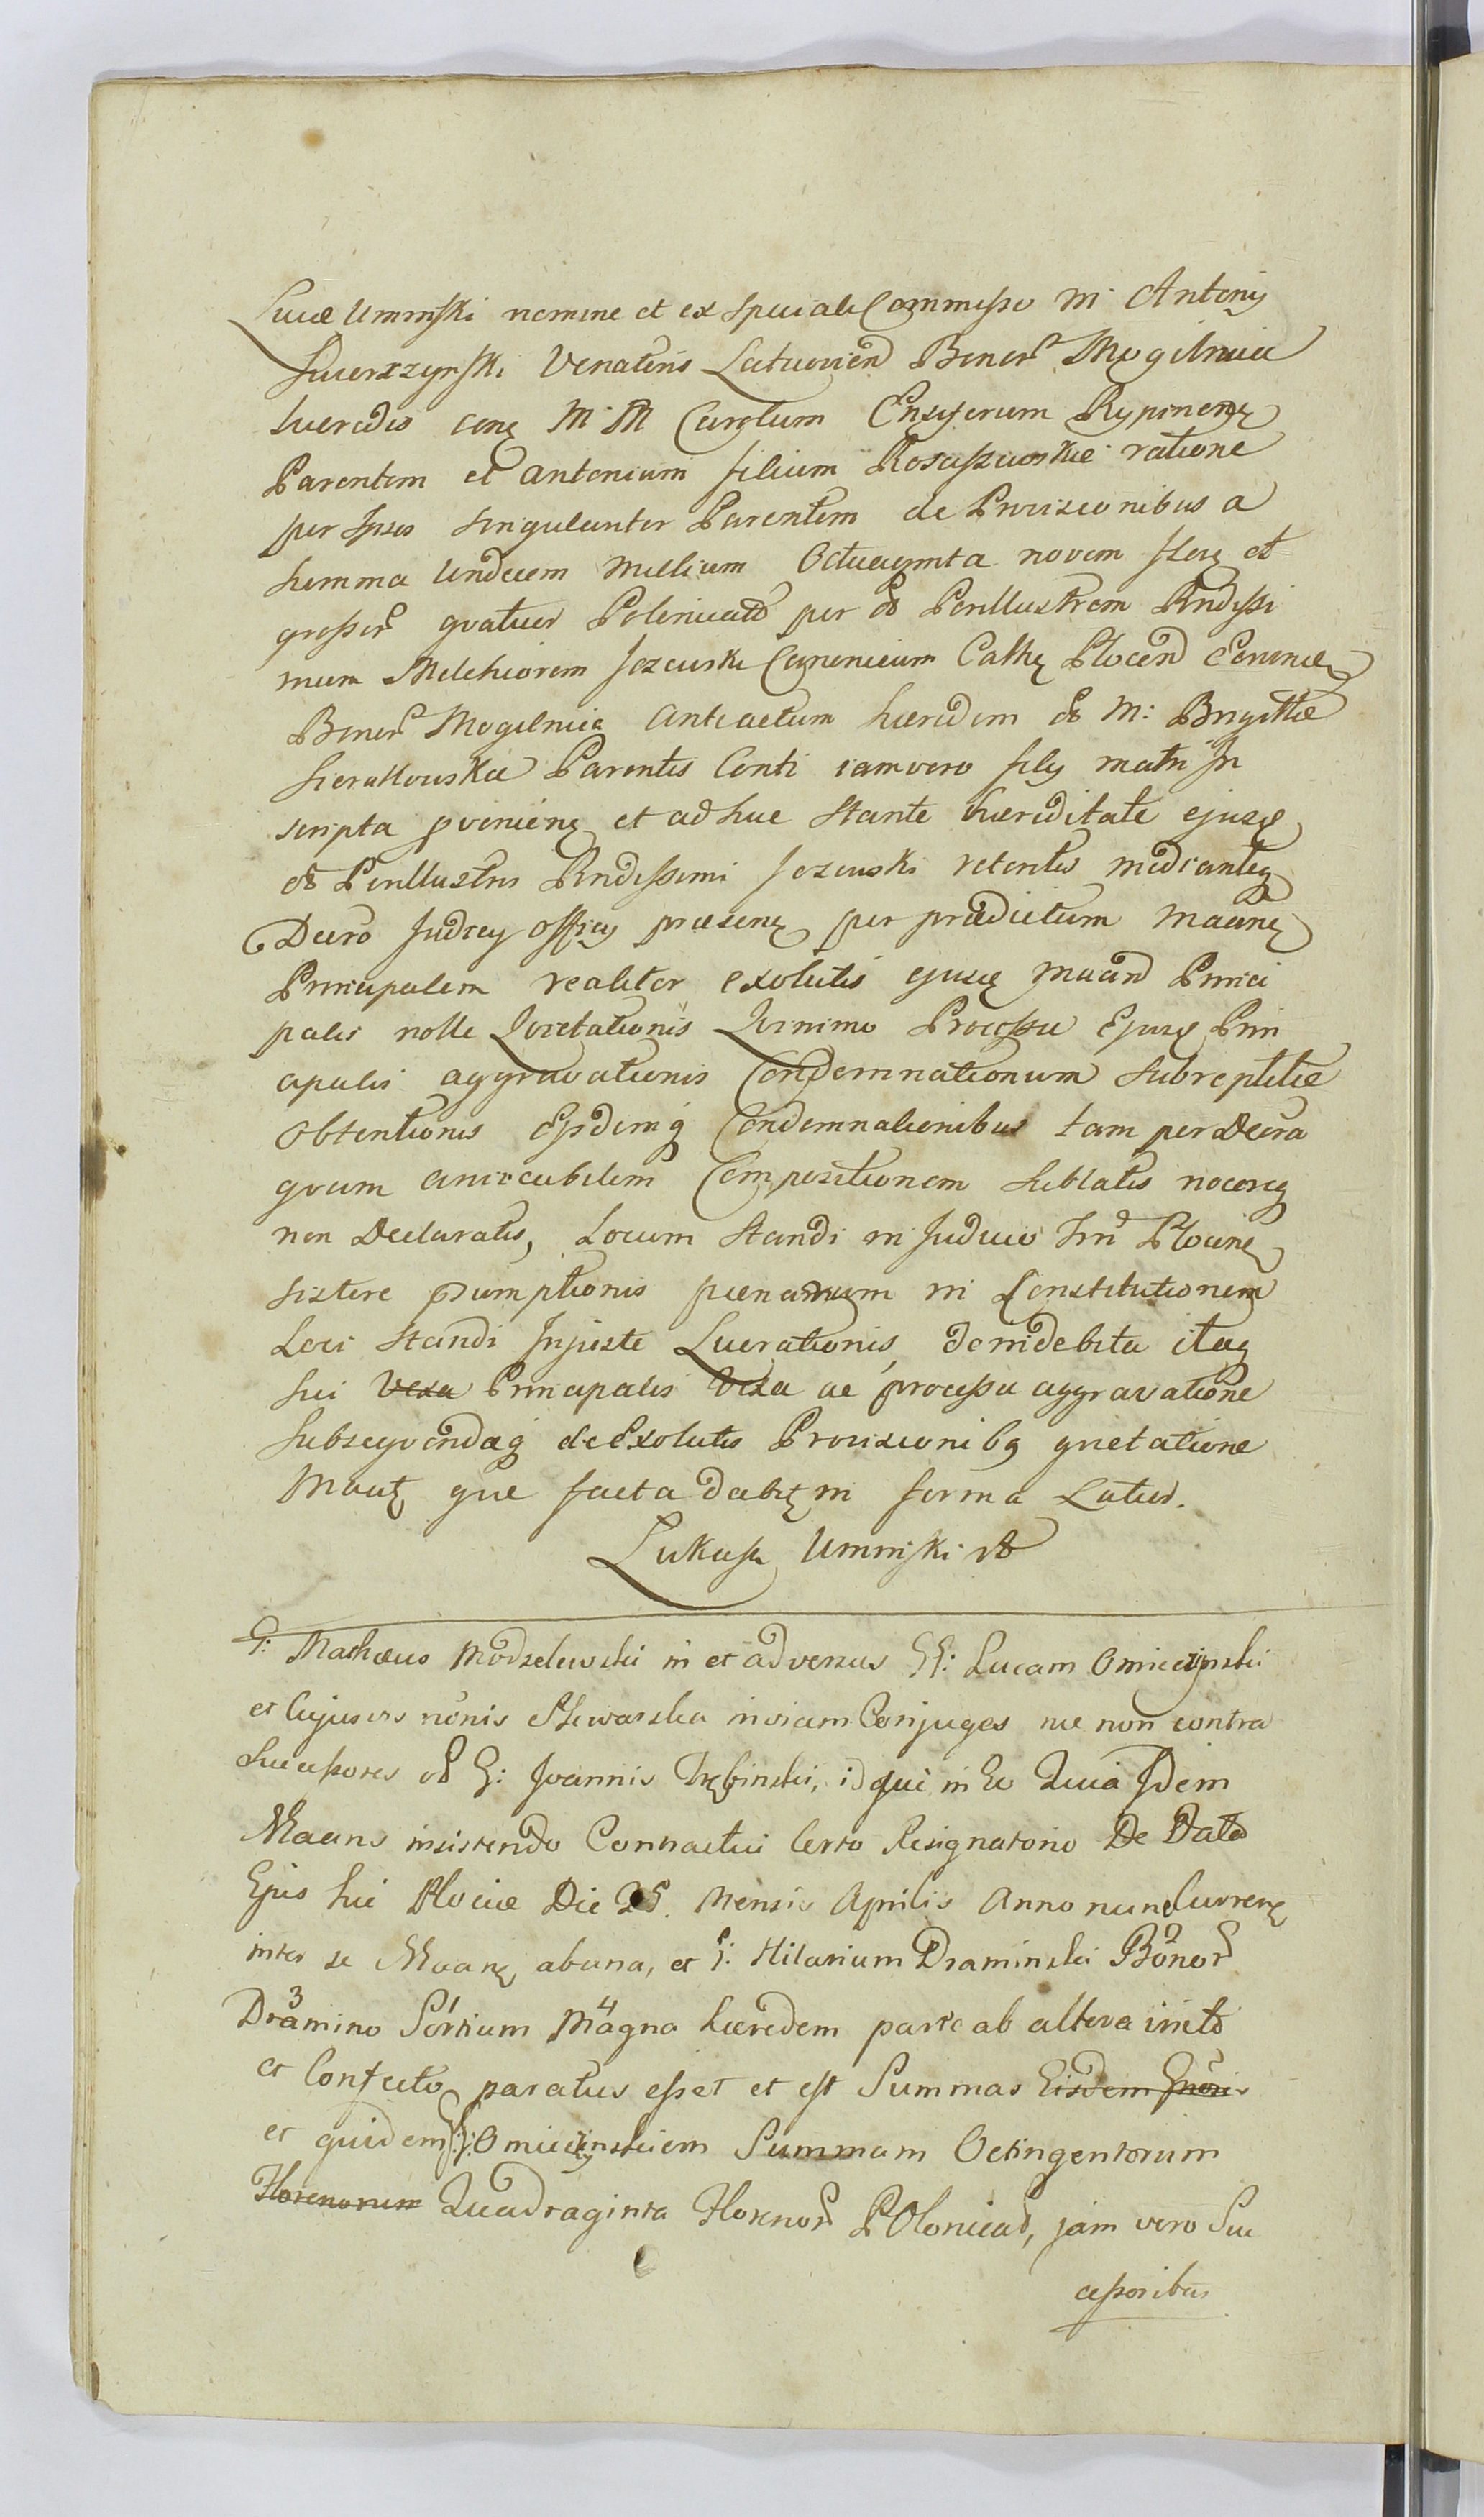 Lucæ Uminski nomine et ex speciali Commisso M: Antonij
Swierzzynski Venatoris Latuovien Bonor Mogilnica
hæredis conq M: M Carolum Ensiferum Rypinenq
Parentem et Antonium filium Rosciszewskie ratione
per Ipsos singulanter Parentem de Provisionibus a
summa Undecem millium Octuaginta novem flor et
grossor quatuor Polonical per ol Perillustrem Rndissi
mum Melchiorem Jezewski Canonicum Cathq Plocen
Bonor Mogilnica anteactum hæredem ol M: Brigittæ
Sierakowska Parentis Conti iam vero filij matri In
scripta pvenienq et ad huc stante hæreditate ejusq
ol Perillustris Rndissimi Jezewski retentis medianteq
Decro Judicij Officij præsenq per prædictum Maanq
Principalem realiter exolutis ejusq Maan Princi
palis nolle Qvietationis Qvinimo Processu Ejusq Prin
cipalis aggravationis Condemnationum subreptitie
obtentionis Eisdemq Condemnationibus tam per Decra
qvam amicabilem Compositionem sublatis nocereq
non Declaratis, Locum standi in Judicio Plocinq
sistere psumptionis pænarum in Constitutionem
Loci standi Injuste Lucrationis, de indebita itaq
sui Vexa Principalis Vexa ac processu aggravatione
subseqvendaq de Exolutis Provisionibq qvietatione
Maat que facta dabit in forma Latior.
Lukasz Uminski
G: Mathæus Modzelewski in et adversus GG: Lucam Omiecinski
et Cujusvis nonis Skwarska invicem Conjuges nec non contra
Successores ol G: Joannis Trębinski, idque in eo Quia Idem
Maans insistendo Contractui Certo Resignatorio De Data
Ejus hic Plociæ Die 25. Mensis Aprilis Anno nunc Currenq
inter se Maanq ab una, et G: Hilarium Draminski Bonor
Dramino Sortium Magna hæredem parte ab altera inito
et Confecto paratus esset et est Summas Eisdem
et quidem GG: Omiecinskiem Summam Octingentorum
Florenorum Quadraginta Florenor POlonical, jam vero Suc
cessoribus